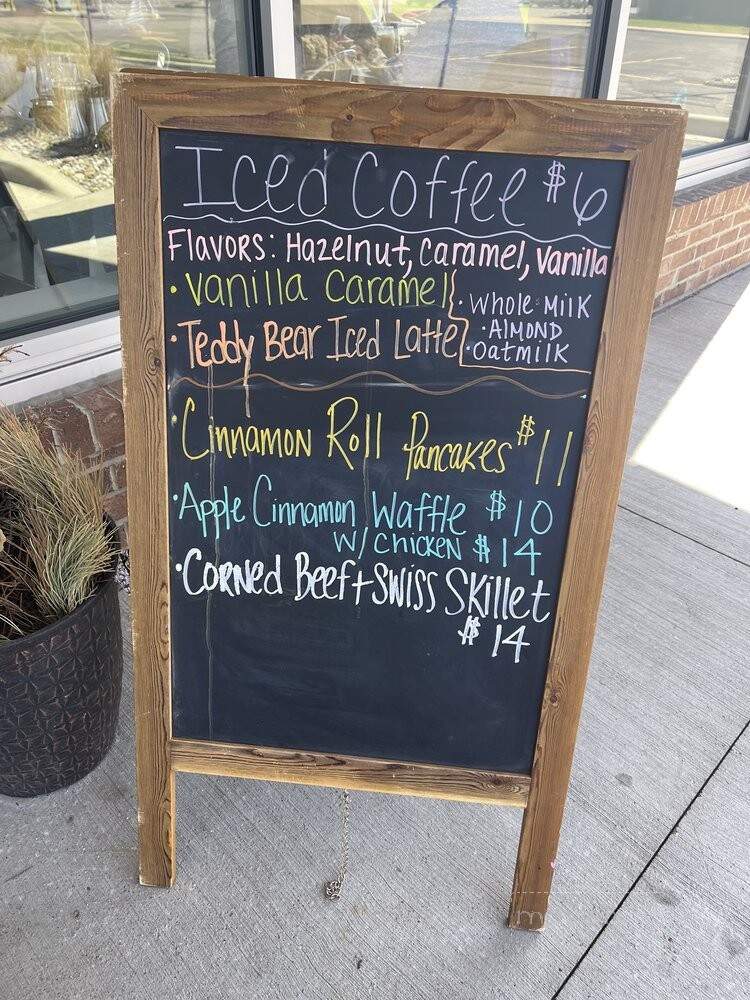 Iced Coffee $6
Flavors: Hazelnut, Caramel, Vanilla
• Vanilla Caramel
• Whole Milk
• Almond
• Teddy Bear Iced Latte
• Oatmilk
• Cinnamon Roll Pancakes $11
• Apple Cinnamon Waffle $10
w/ Chicken $14
• Corned Beef + Swiss Skillet
$14